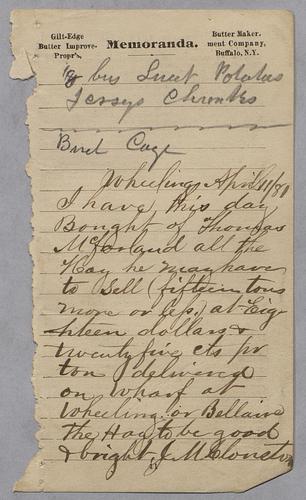 Gilt-Edge Butter Maker.
Butter Improve- Memoranda. ment Company,
Propr's, Buffalo, N.Y.
bus Sweet Potatoes
Jerseys Chromtes
Bird Cage
Wheeling April 11/81
I have this day
Bought of Thomas
McFarland all the
Hay he may have
to sell (fifteen tons
more or less) at Eig
hteen dollars &
twenty five cts pr
ton delivered
on Wharf at
Wheeling or Bellaire
The Hay to be good
& bright J. M.